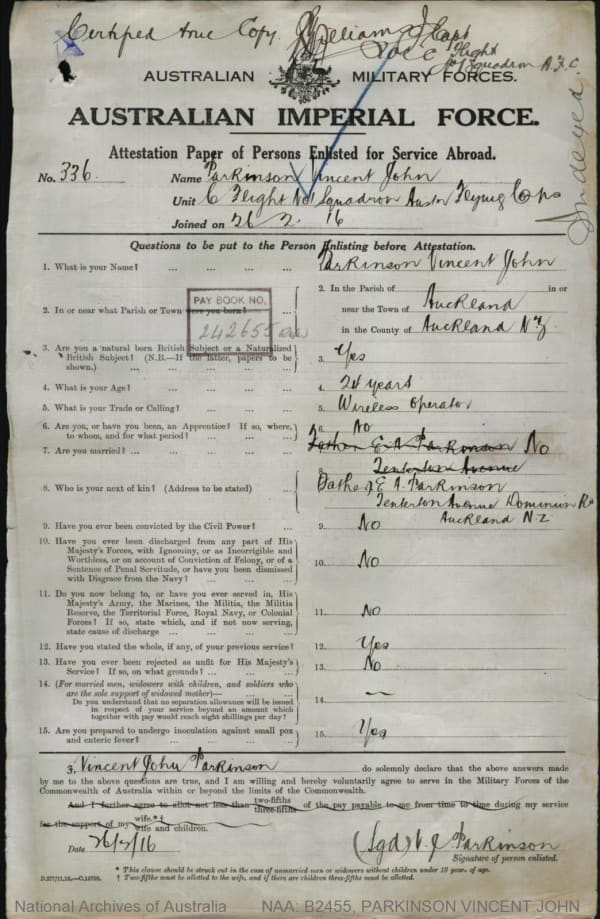 Certified true Copy. William J Capt
O.C. C Flight
No 1 Squadron A.F.C
AUSTRALIAN MILITARY FORCES.
AUSTRALIAN IMPERIAL FORCE.
Indexed.
Attestation Paper of Persons Enlisted for Service Abroad.
No. 336. Name Parkinson Vincent John
Unit C Flight No 1 Squadron Austn Flying Cps
Joined on 26 2 16
Questions to be put to the Person Enlisting before Attestation.
1. What is your Name? ... ... ... ... 1. Parkinson Vincent John
2. In or near what Parish or Town were you born? ... 2. In the Parish of in or
near the Town of Auckland
in the County of Auckland N.Z.
PAY BOOK NO.
242655
3. Are you a natural born British Subject or a Naturalized
British Subject? (N.B.—If the latter, papers to be
shown.) ... ... ... ... 3. Yes
4. What is your Age? ... ... ... ... 4. 24 years
5. What is your Trade or Calling? ... ... ... 5. Wireless Operator
6. Are you, or have you been, an Apprentice? If so, where,
to whom, and for what period? ... ... ... 6. No
7. Are you married? ... ... ... ... 7. Father E A Parkinson No
Tenterton Avenue
8. Who is your next of kin? (Address to be stated) ... 8. Father E. A. Parkinson
Tenterton Avenue Dominion Rd
Auckland N.Z
9. Have you ever been convicted by the Civil Power? ... 9. No
10. Have you ever been discharged from any part of His
Majesty's Forces, with Ignominy, or as Incorrigible and
Worthless, or on account of Conviction of Felony, or of a
Sentence of Penal Servitude, or have you been dismissed
with Disgrace from the Navy? ... ... ... 10. No
11. Do you now belong to, or have you ever served in, His
Majesty's Army, the Marines, the Militia, the Militia
Reserve, the Territorial Force, Royal Navy, or Colonial
Forces? If so, state which, and if not now serving,
state cause of discharge ... ... ... ... 11. No
12. Have you stated the whole, if any, of your previous service? 12. Yes
13. Have you ever been rejected as unfit for His Majesty's
Service? If so, on what grounds? ... ... ... 13. No
14. (For married men, widowers with children, and soldiers who
are the sole support of widowed mother)—
Do you understand that no separation allowance will be issued
in respect of your service beyond an amount which
together with pay would reach eight shillings per day? 14. —
15. Are you prepared to undergo inoculation against small pox
and enteric fever? ... ... ... ... 15. Yes
I, Vincent John Parkinson do solemnly declare that the above answers made
by me to the above questions are true, and I am willing and hereby voluntarily agree to serve in the Military Forces of the
Commonwealth of Australia within or beyond the limits of the Commonwealth.
And I further agree to allot not less than two-fifths three-fifths of the pay payable to me from time to time during my service
for the support of my wife.*† wife and children.
Date 26/2/16 (Sgd) V. J. Parkinson
Signature of person enlisted.
* This clause should be struck out in the case of unmarried men or widowers without children under 18 years of age.
† Two-fifths must be allotted to the wife, and if there are children three-fifths must be allotted.
National Archives of Australia NAA: B2455, PARKINSON VINCENT JOHN